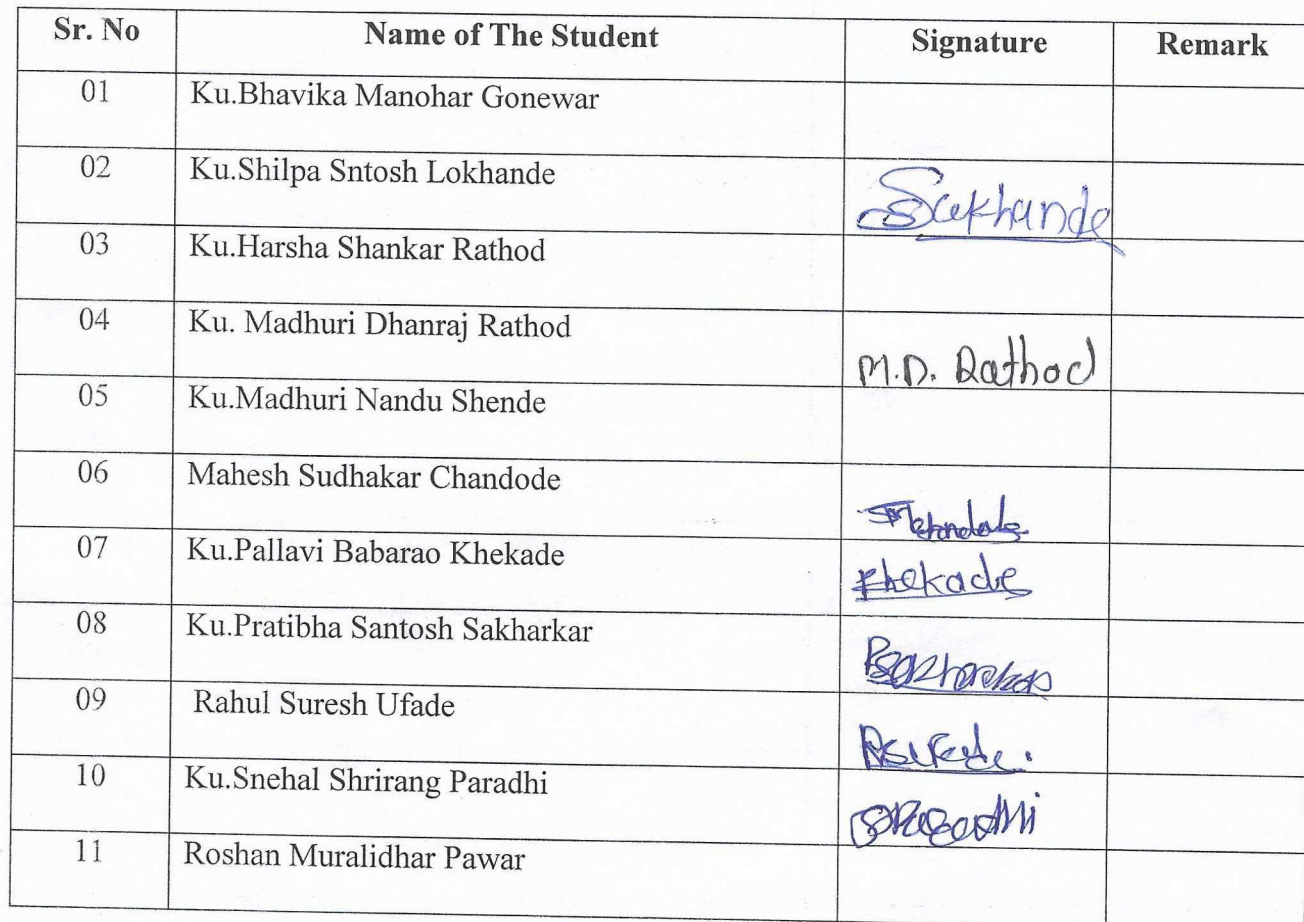 Sr. No Name of The Student Signature Remark
01 Ku.Bhavika Manohar Gonewar
02 Ku.Shilpa Sntosh Lokhande
03 Ku.Harsha Shankar Rathod
04 Ku. Madhuri Dhanraj Rathod M.D. Rathod
05 Ku.Madhuri Nandu Shende
06 Mahesh Sudhakar Chandode
07 Ku.Pallavi Babarao Khekade Khekade
08 Ku.Pratibha Santosh Sakharkar
09 Rahul Suresh Ufade
10 Ku.Snehal Shrirang Paradhi
11 Roshan Muralidhar Pawar